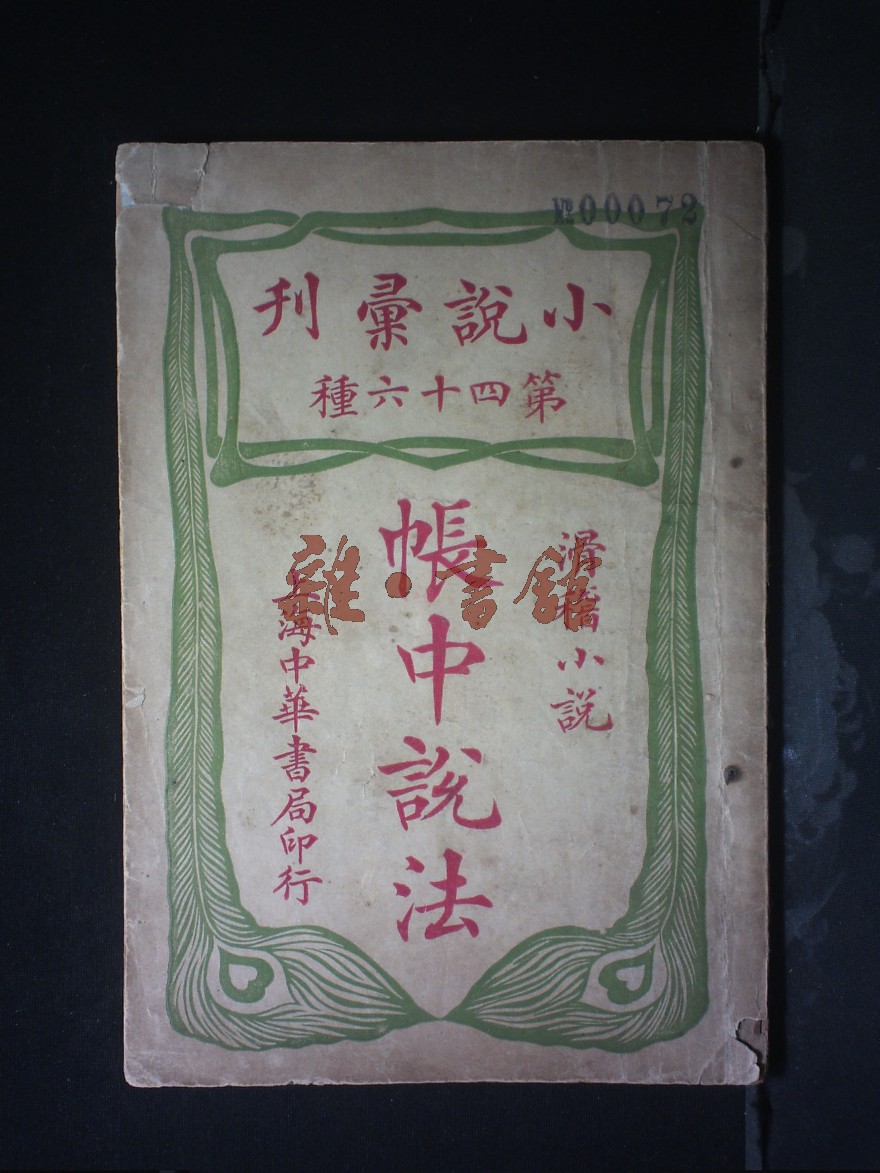 №00072
小說彚刊
第四十六種
滑稽小說
帳中說法
上海中華書局印行
雜·書館